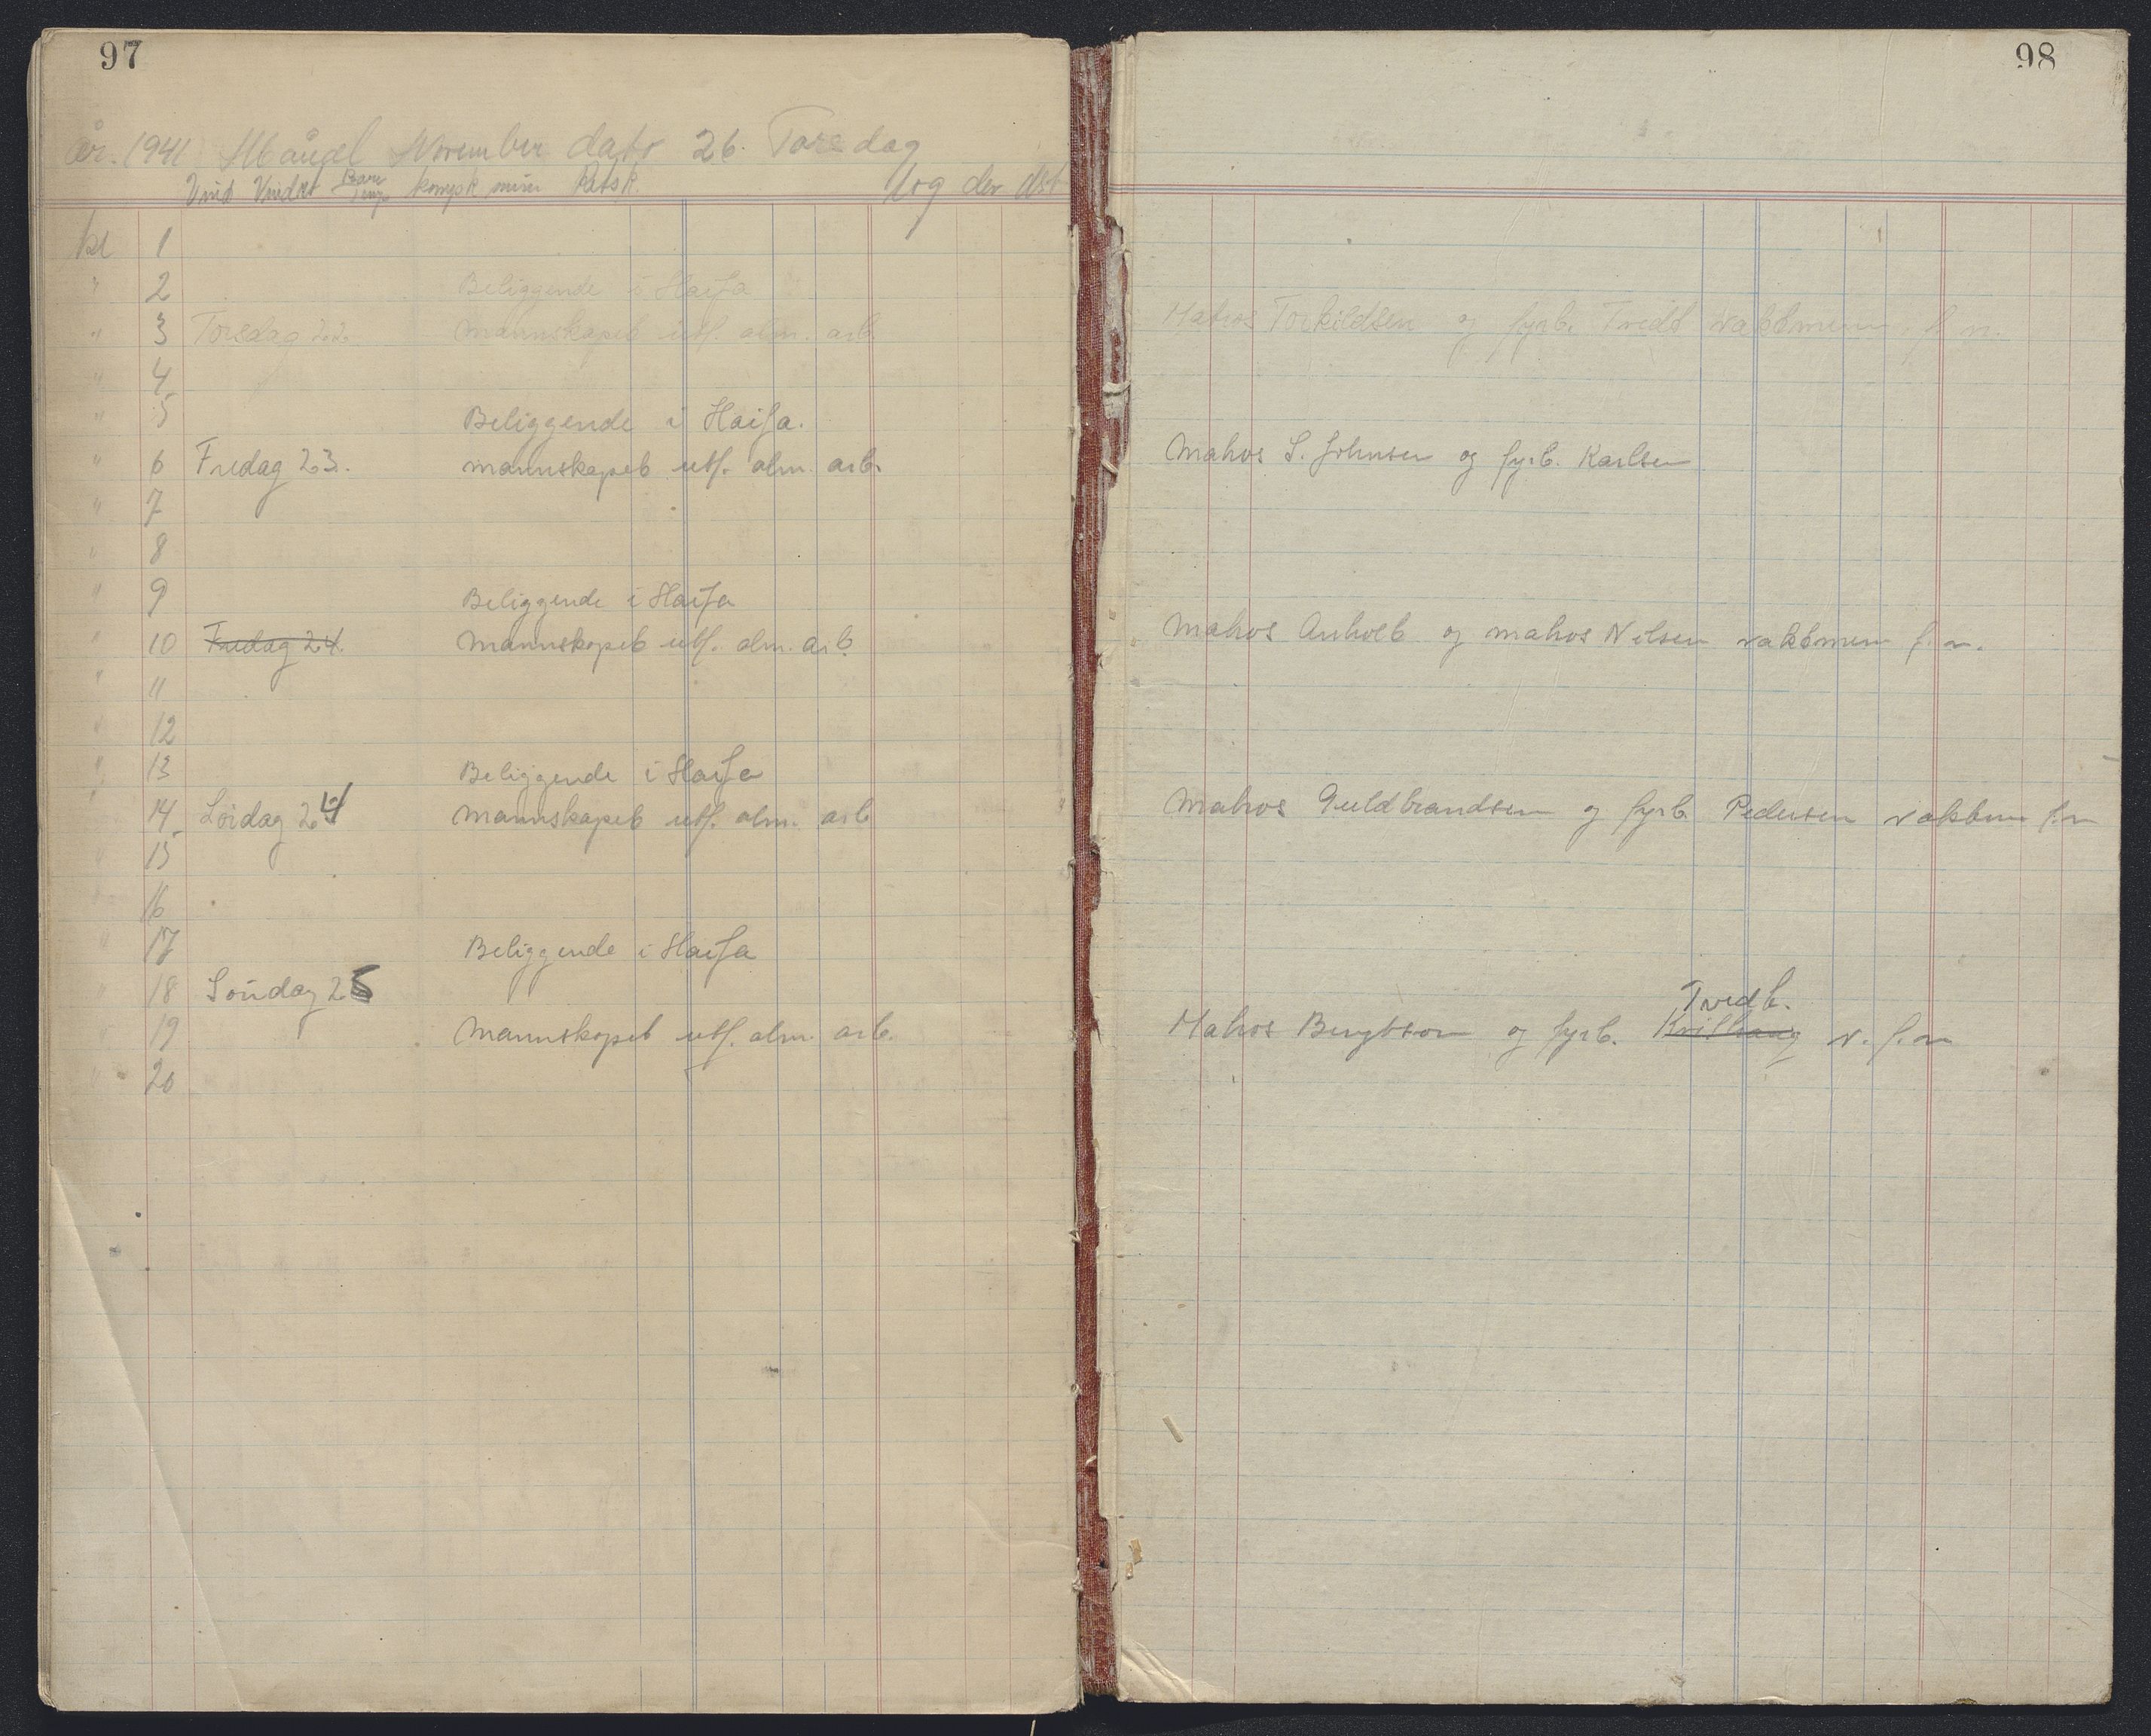 97
År. 1941 Måned November dato 26. Torsdag
Vind Vindst Baro Temp komp k misv Retsk. log dev dst
kl 1
" 2 Beliggende i Haifa
" 3 Torsdag 22. Mannskapet utf. alm. arb.
" 4
" 5 Beliggende i Haifa.
" 6 Fredag 23. mannskapet utf. alm. arb.
" 7
" 8
" 9 Beliggende i Haifa
" 10 Fredag 24. Mannskapet utf. alm. arb.
" 11
" 12
" 13 Beliggende i Haifa
" 14 Lördag 24 Mannskapet utf. alm. arb
" 15
" 16
" 17 Beliggende i Haifa
" 18 Söndag 25
" 19 Mannskapet utf. alm. arb.
" 20
98
Matros Torkildsen og fyrb. Tvedt vaktmenn f. n.
Matros S. Johnsen og fyrb. Karlsen
Matros Anholt og matros Nilsen vaktmenn f. n.
Matros Guldbrandsen og fyrb. Pedersen vaktm f. n
Tvedt.
Matros Bengtson og fyrb. Kvilhaug v. f. n